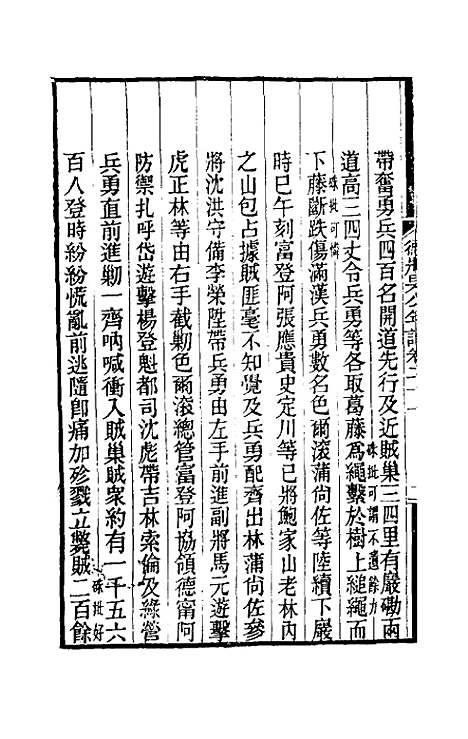 德壯果公年譜卷二十一
帶奮勇兵四百名開道先行及近賊巢三四里有巖磡兩
硃批可謂不遺餘力
道高三四丈令兵勇等各取葛藤爲繩繫於樹上縋繩而
硃批可憐
下藤斷跌傷滿漢兵勇數名色爾滚蒲尚佐等陸續下巖
時巳午刻富登阿張應貴史定川等已將鮑家山老林內
之山包占據賊匪毫不知覺及兵勇配齊出林蒲尚佐參
將沈洪守備李榮陞帶兵勇由左手前進副將馬元遊擊
虎正林等由右手截勦色爾滚總管富登阿協領德甯阿
防禦扎呼岱遊擊楊登魁都司沈彪帶吉林索倫及綠營
兵勇直前進勦一齊吶喊衝入賊巢賊衆約有一千五六
百人登時紛紛慌亂前逃隨卽痛加殄戮立斃賊二百餘
硃批好